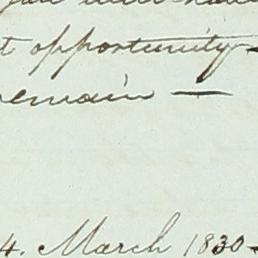 t opportunity
remain —
4. March 1830